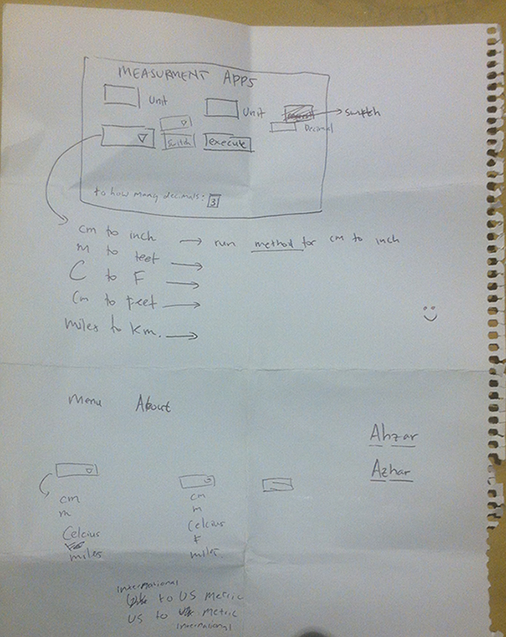 MEASURMENT APPS
Unit
Unit
switch
Decimal
switch
execute
to how many decimals: 3
cm to inch → run method for cm to inch
m to feet →
C to F →
Cm to Feet →
miles to Km. →
Menu About
Ahzar
Azhar
cm cm
m m
Celcius Celcius
F
miles miles
international
to US metric
US to metric
international